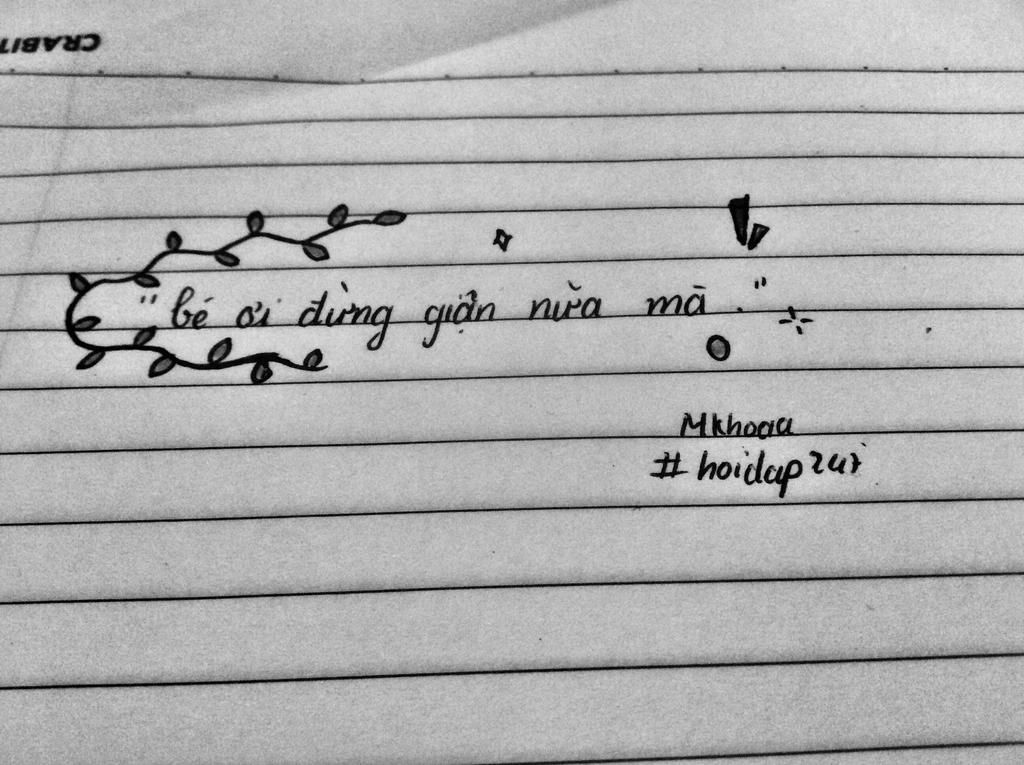 CRABIT
"bé ơi đừng giận nữa mà."
Mkhoaa
#hoidap247